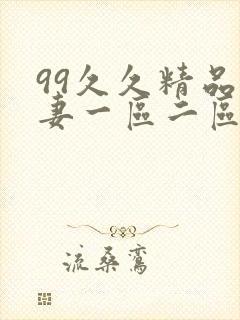 99久久精品
妻一區二區
流桑鸞